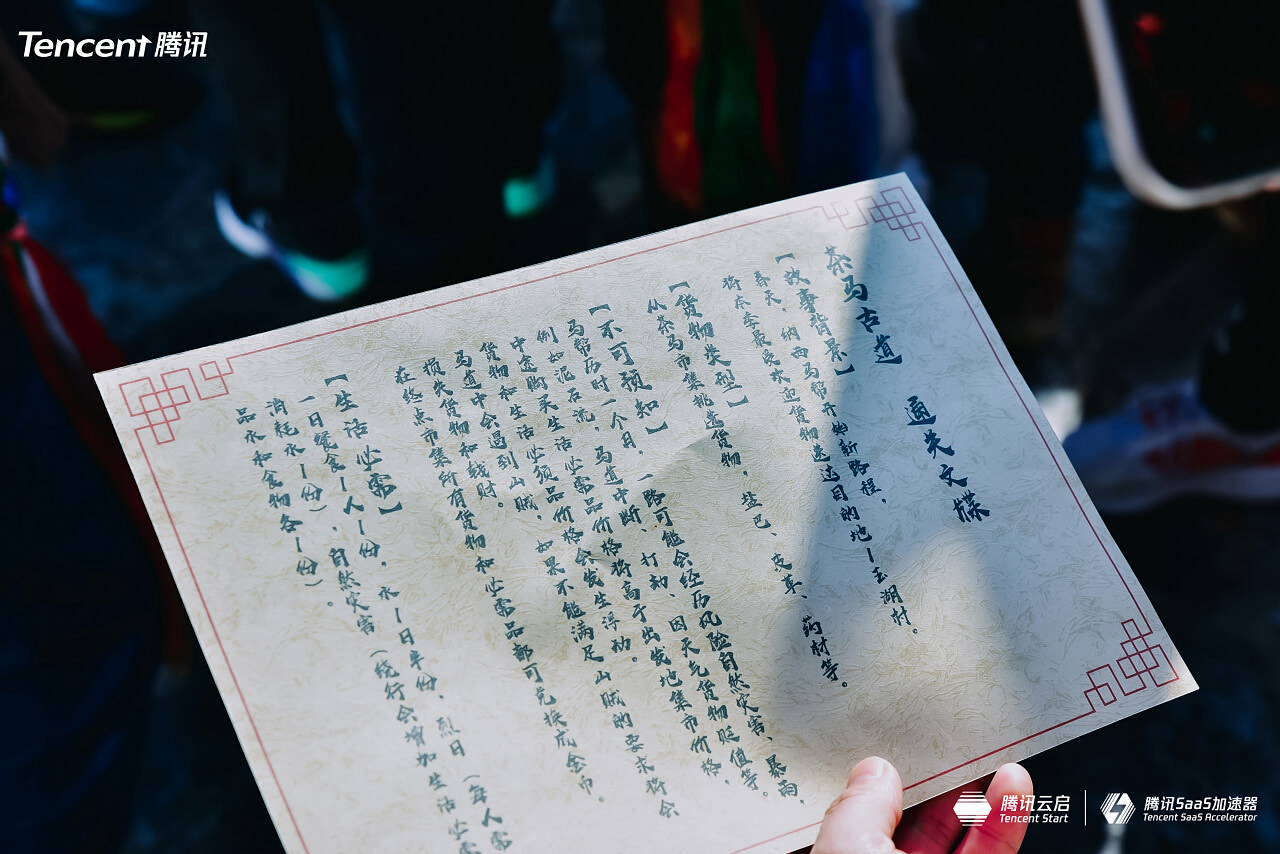 Tencent 腾讯
茶马古道 通关文牒
【故事背景】
春天，纳西马帮开始新路程，
将本季最受欢迎货物送达目的地—玉湖村。
【货物类型】
从茶马市集挑选货物，盐巴、皮革、药材等。
【不可预知】
马帮历时一个月，一路可能会经历风险自然灾害、暴雨，
例如泥石流，马道中断，打劫，因天气货物贬值等。
中途购买生活必需品价格将高于出发地集市价格，
货物和生活必须品价格会发生浮动。
马道中会遇到山贼，如果不能满足山贼的要求将会
损失货物和钱财。
在终点市集所有货物和必需品都可兑换成金币。
【生活必需】
一日餐食一人一份，水一日半份，烈日（每人需
消耗水一份），自然灾害（绕行会增加生活必需
品水和食物各一份）。
腾讯云启
Tencent Start
腾讯SaaS加速器
Tencent SaaS Accelerator